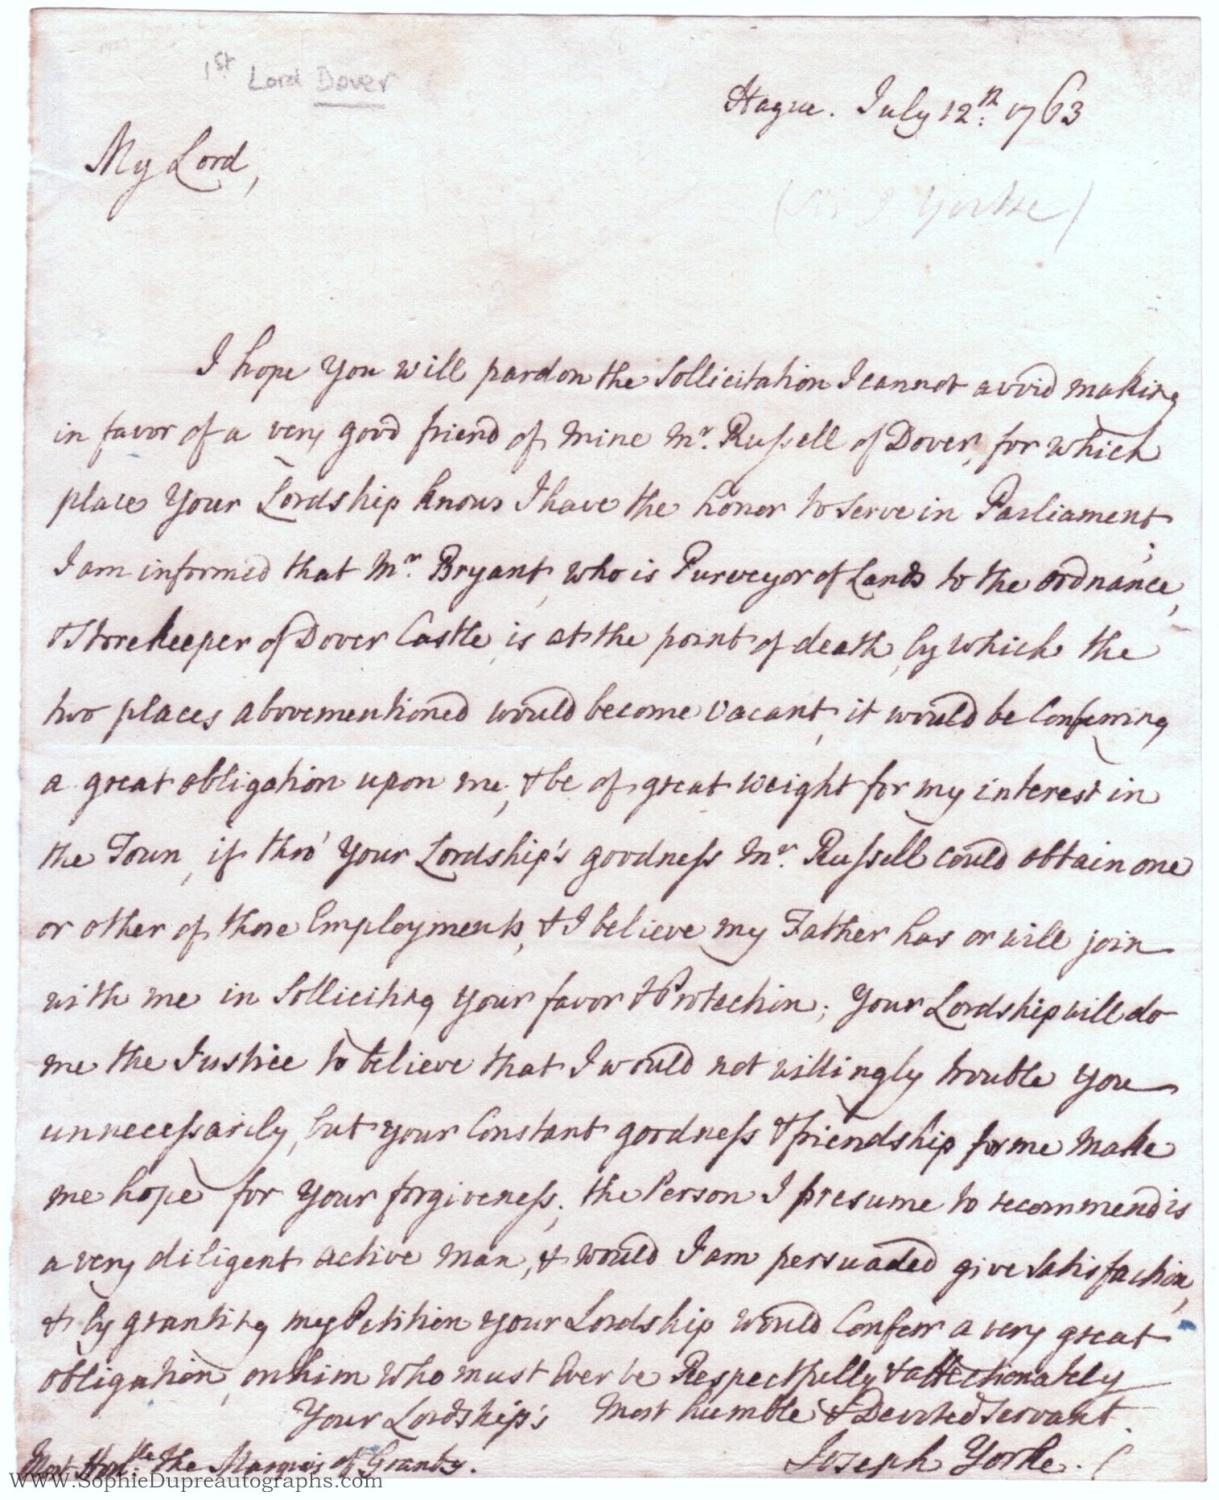 1st Lord Dover
Hague. July 12th: 1763
My Lord,
Yorke)
I hope You will pardon the Sollicitation I cannot avoid making
in favor of a very good friend of mine Mr. Russell of Dover, for which
place Your Lordship knows I have the honor to serve in Parliament;
I am informed that Mr. Bryant, who is Purveyor of Lands to the Ordnance,
& Storekeeper of Dover Castle, is at the point of death, by which the
two places abovementioned would become vacant, it would be Conferring
a great obligation upon me, & be of great weight for my interest in
the Town, if thro' Your Lordship's goodness Mr. Russell could obtain one
or other of those Employments, & I believe my Father has or will join
with me in Solliciting Your favor & Protection; Your Lordship will do
me the Justice to believe that I would not willingly trouble You
unnecessarily, but your Constant goodness & friendship for me make
me hope for Your forgiveness; the Person I presume to recommend is
a very diligent active man, & would I am persuaded give Satisfaction,
& by granting my Petition Your Lordship would Conferr a very great
obligation, on him who must Ever be Respectfully & affectionately
Your Lordship's Most humble & Devoted Servant.
Joseph Yorke.
Most Honble: the Marquis of Granby.
www.SophieDupreautographs.com